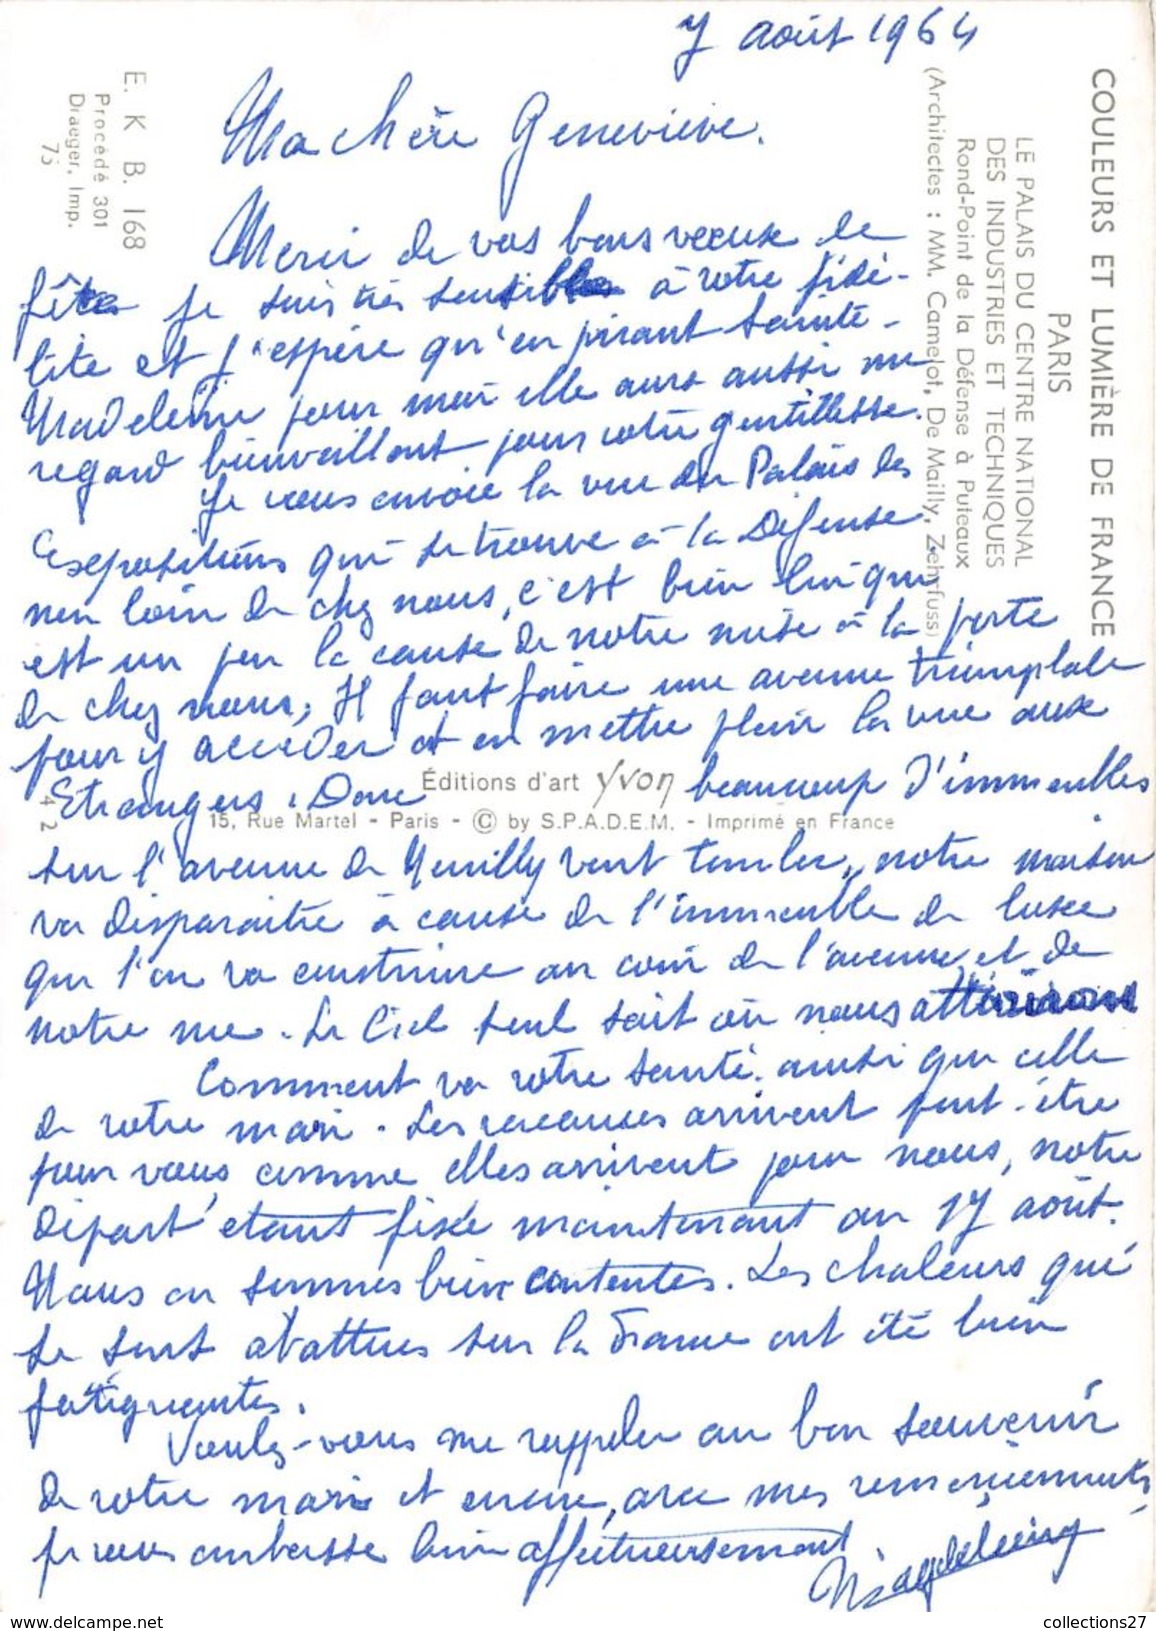 7 août 1964
Ma chère Geneviève.
Merci de vos bons voeux de
fête je suis très sensible à votre fidé-
lité et j'espère qu'en priant Sainte-
Madeleine pour moi elle aura aussi un
regard bienveillant pour votre gentillesse.
Je vous envoie la vue du Palais des
Expositions qui se trouve à la Défense
non loin de chez nous, c'est bien lui qui
est un peu la cause de notre mise à la porte
de chez nous, Il faut faire une avenue triomphale
pour y accéder et en mettre plein la vue aux
Etrangers. Donc beaucoup d'immeubles
sur l'avenue de Neuilly vont tomber, notre maison
va disparaitre à cause de l'immeuble de luxe
que l'on va construire au coin de l'avenue et de
notre rue. Le Ciel seul sait où nous atterrirons
Comment va votre santé ainsi que celle
de votre mari. Les vacances arrivent peut-être
pour vous comme elles arrivent pour nous, notre
départ étant fixée maintenant au 17 août.
Nous en sommes bien contentes. Les chaleurs qui
se sont abattues sur la France ont été bien
fatiguantes.
Voulez-vous me rappeler au bon souvenir
de votre mari et encore, avec mes remerciements,
je vous embrasse bien affectueusement
Magdeleine
COULEURS ET LUMIÈRE DE FRANCE
PARIS
LE PALAIS DU CENTRE NATIONAL
DES INDUSTRIES ET TECHNIQUES
Rond-Point de la Défense à Puteaux
(Architectes : MM. Camelot, De Mailly, Zehrfuss)
E. K B. 168
Procédé 301
Draeger, Imp.
75
Éditions d'art Yvon
15, Rue Martel - Paris - © by S.P.A.D.E.M. - Imprimé en France
4 2
collections27